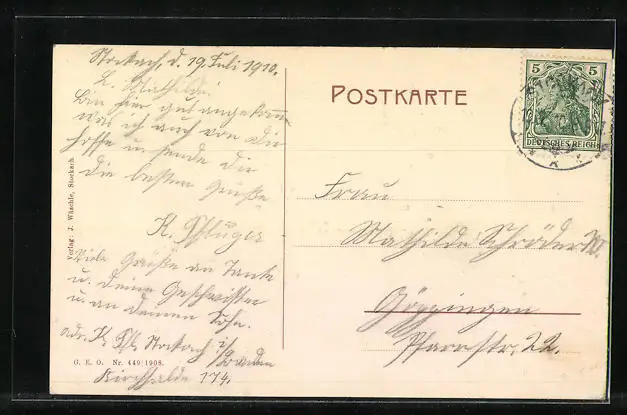 Stockach d. 19. Juli 1910.
L. Mathilde.
Bin hier gut angekommen
was ich auch von Dir
hoffe u. sende Dir
die besten Grüße
K. Pfluger
Viele Grüße an Tante
u. Deine Geschwister
u. an Deinen Sohn.
adr. K. Pfl. Stockach i/
Kirchhalde 174.
Verlag: J. Wäschle, Stockach.
G. E. O. Nr. 449 1908.
POSTKARTE
5 5
DEUTSCHES REICH
Frau
Mathilde Schröder W.
Göppingen
Pfarrstr. 22.